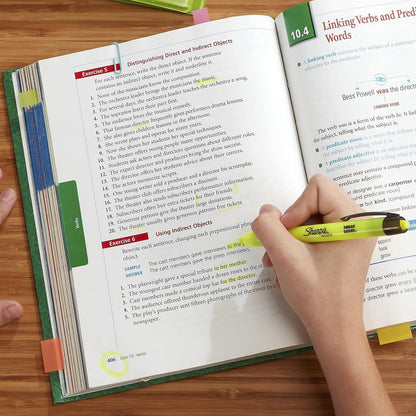 Exercise 5 Distinguishing Direct and Indirect Objects
For each sentence, write the direct object. If the sentence
contains an indirect object, write it and underline it.
1. None of the musicians know the composition.
2. The orchestra leader brings the musicians the music.
3. For several days, the orchestra leader teaches the orchestra a song.
4. The sopranos learn their part first.
5. The audience loves the musical comedy.
6. That famous director frequently gives performers drama lessons.
7. She also gives children lessons in the afternoon.
8. She wrote plays and operas for many years.
9. Now she shows her students her special techniques.
10. The theater offers young people many opportunities.
11. Students ask actors and directors questions about different roles.
12. The expert director and producers bring the show success.
13. The director offers her students advice about their careers.
14. The actors memorize the scripts.
15. One young writer sold a producer and a director his screenplay.
16. The theater club offers subscribers a discount.
17. The theater also sends subscribers performance information.
18. Subscribers often buy extra tickets for their friends.
19. Generous patrons give the theater large donations.
20. The theater usually gives generous patrons free tickets.
Exercise 6 Using Indirect Objects
Rewrite each sentence, changing each prepositional phrase
object.
SAMPLE The cast members gave interviews to the
ANSWER The cast members gave the press interviews.
1. The playwright gave a special tribute to her mother.
2. The youngest cast member handed a dozen roses to the
3. Cast members made a comical top hat for the director.
4. The audience offered thunderous applause to the entire cast.
5. The play's producer sent fifteen photographs of the event
newspaper.
406 Unit 10 Verbs
Verbs
10.4 Linking Verbs and Predi
Words
A linking verb connects the subject of a sentence
adjective in the predicate.
Bess Powell was the director
LINKING VERB
The verb was is a form of the verb be. It
the subject, telling what the subject is.
Sharpie